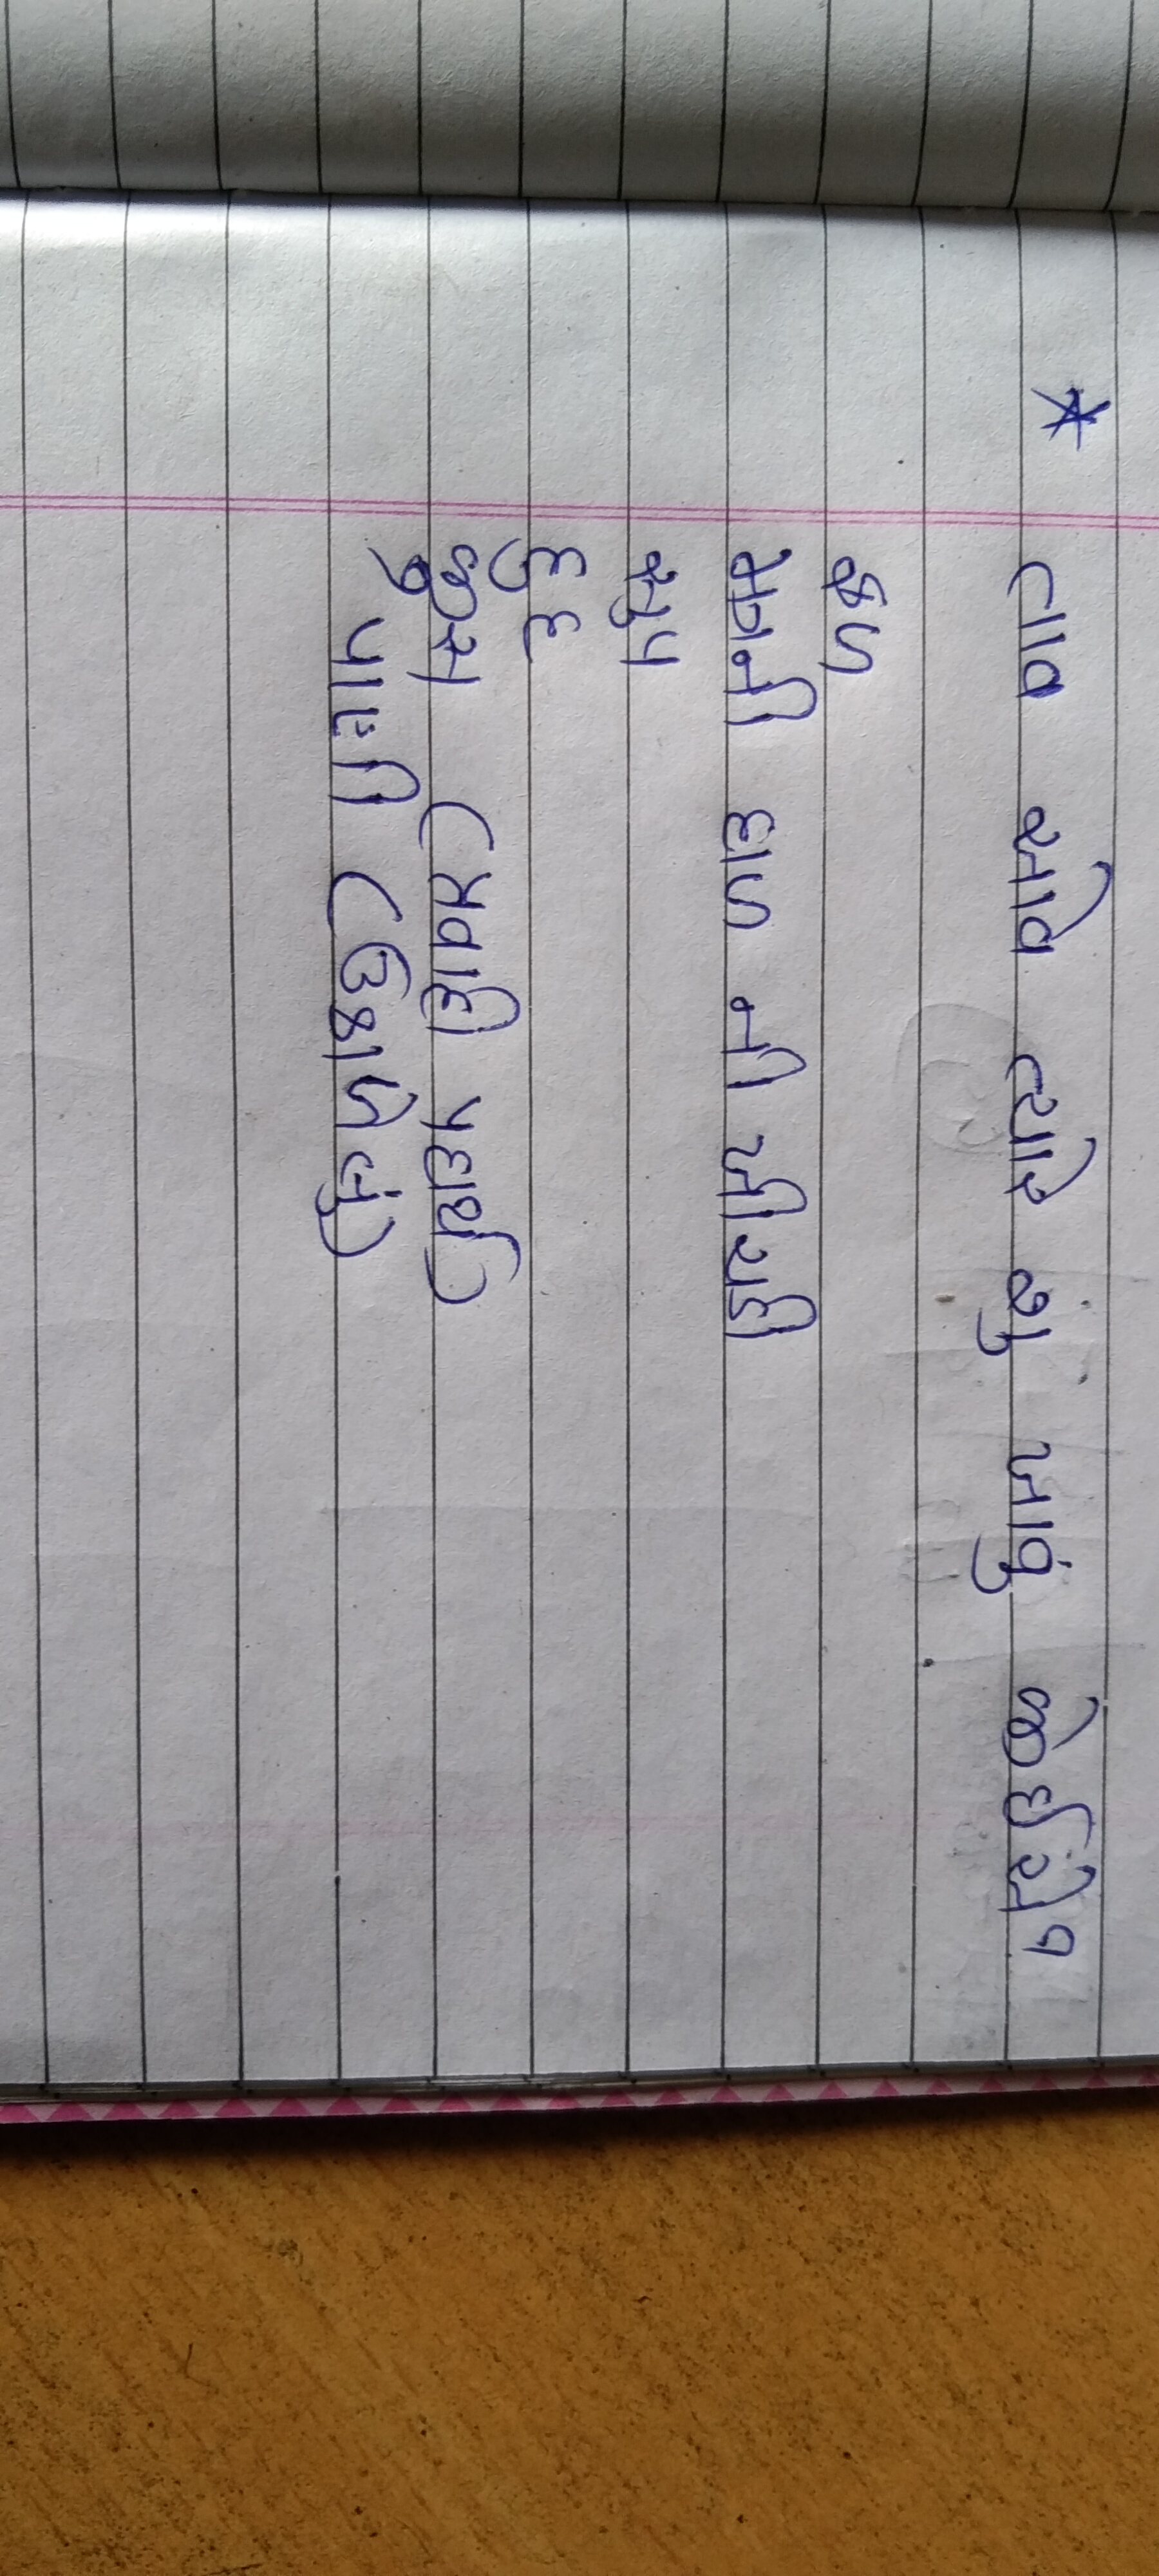 * તાવ આવે ત્યારે શું ખાવું જોઈએ?
ફળ
મગની દાળ ની ખીચડી
સુપ
દુદ
જુસ (પ્રવાહી પદાર્થ)
પાણી (ઉકાળેલું)